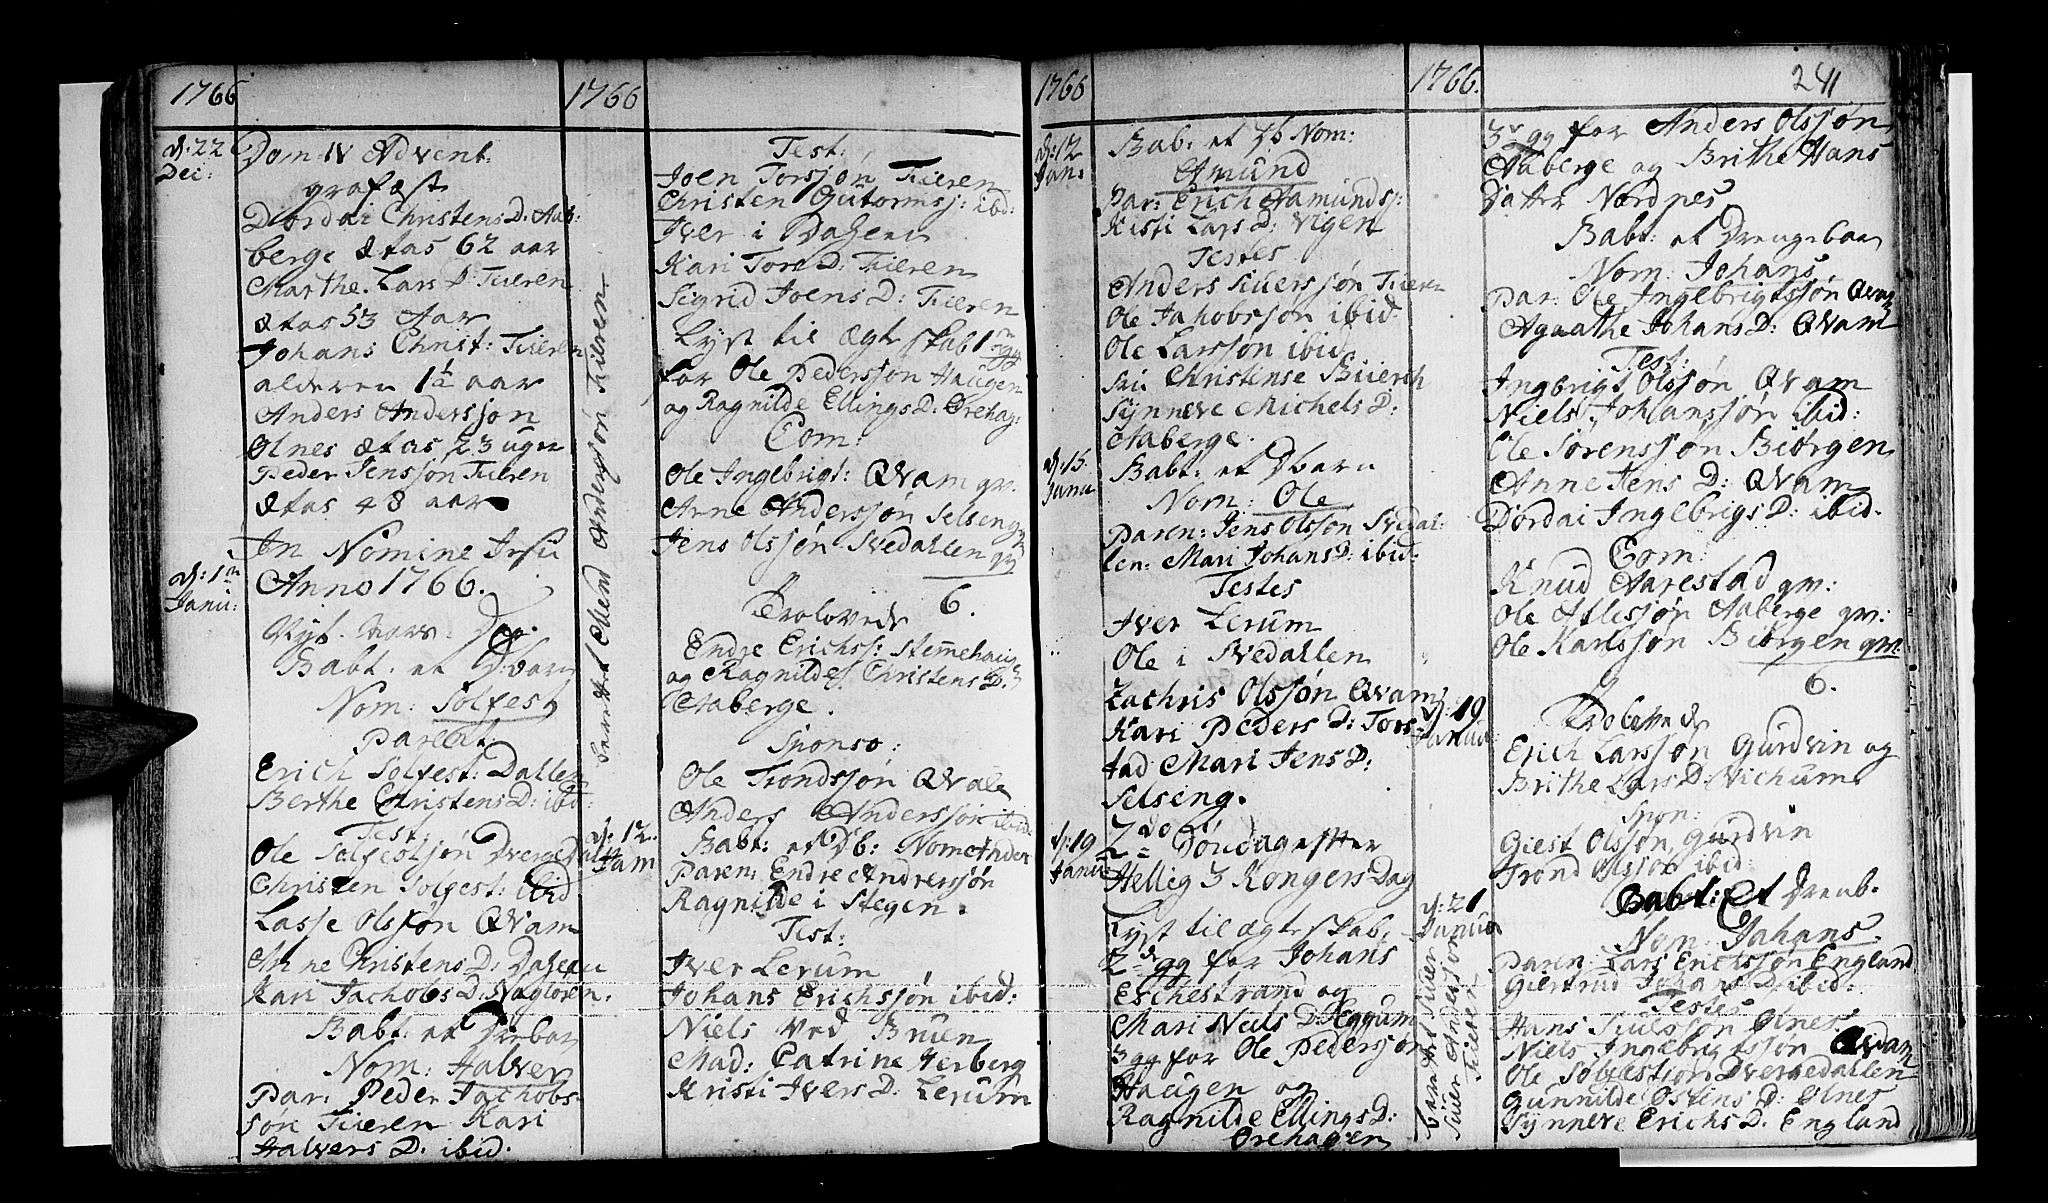 1766
d: 22
Dei:
Dom IV Advent.
grafæst
Dordai Christens D: Aab-
berge Ætas 62 aar
Marthe Lars D Fieren
Ætas 53 Aar
Johans Christ: Fieren
alderen 1½ aar
Anders Andersson
Olnes Ætas 23 uger
Peder Jensson Fieren
Ætas 48 aar
In Nomine Jesu
d: 1
Janu:
Anno 1766.
Nyt-aars-Dag.
Babt: et Dbarn
Nom: Solfest
Parent:
Erich Solfest: Dallen
Berthe Christens D: ibd:
Test:
Ole Solfestsøn Dvergedalen
Christen Solfest: ibid
Lasse Olssøn Qvam
Anne Christens D: Dalen
Kari Jachobs D: Nagløren.
Babt: et Drebar
Nom: Halver
Par: Peder Jachobs-
søn Fieren Kari
Halvers D. ibid.
1766
Andersøn Fieren
d: 12.
Jam
Test:
Joen Torssøn Fieren
Christen Gutormss: ibid:
Iver i Dalsen
Kari Tore D: Fieren
Sigrid Joens D: Fieren
Lyst til Ægteskab 1 gg
for Ole Pederssøn Haugen
og Ragnilde Ellings D: Orehag:
Com:
Ole Ingebrigt: Qvam qv.
Arne Anderssøn Selseng
Jens Olssøn Svedallen qv
6.
Trolovede
Endre Erichss: Stemehaug
og Ragnilde Christens D:
Aaberge.
Sponso:
Ole Trondssøn Qvale
Anders Anderssøn ibid:
Babt: et Db: Nom: Ander
Paren: Endre Andrerssøn
Ragnilde i Stegen.
Test:
Iver Lerum
Johans Erichssøn ibid:
Niels ved Bruen
Mad: Catrine Herberg
Kristi Ivers D: Lerum
1766
d: 12
Janu
Bab: et Db Nom:
Amund
Par: Erich Aamunds:
Kisti Lars D: Vigen
Testes
Anders Siverssøn Fieren
Ole Jahobssøn ibid
Ole Larssøn ibid
Christense Bierch
Synneve Michels D:
Aaberge.
d: 15
Janu
Babt: et Dbarn
Nom: Ole
Paren: Jens Olsson Svedal-
len: Mari Johans D: ibid.
Testes
Iver Lerum
Ole i Svedallen
Zachris Olssøn Qvam
Kari Peders D: Tors-
tad Mari Jens D:
Selseng.
d: 19
Janu
2do Søndag efter
Hellig 3 Kongers Dag
Lyst til ægteskab,
2de gg for Johans
Eschestrand og
Mari Niels D: Eggum
3 gg for Ole Pederssøn
Haugen og
Ragnilde Ellings D:
Orehagen
1766.
d: 19
Janua
d: 21
Janua
241
3 gg for Anders Olssøn
Aaberge og Brithe Hans
Datter Nordnes
Babt: et Drengebarn
Nom: Johans
Par: Ole Ingebrigtssøn Qvam
Agaathe Johans D: Qvam
Test:
Ingbrigt Olssøn Qvam
Niels Johanssøn ibid:
Ole Sørenssøn Biørgen
Anne Jens D: Qvam
Dordai Ingebrigs D: ibid.
Com:
Knud Aarestad qv:
Ole Atlessøn Aaberge qv:
Ole Karlssøn Biørgen qv:
6.
Trolovede
Erich Larssøn Gurdvin og
Brithe Lars D: Vichum
Spon:
Giest Olssøn, Gurdvin
Trond Olssøn ibid:
Babt: Et Drenb.
Nom: Johans.
Paren: Lars Erichssøn England
Giertrud Johans D: ibid:
Testes
Hans Olnes
Niels Ingebrigtssøn Qvam
Ole Solfestsøn Dvergedallen
Gunnilde Ostens D: Olnes
Synneve Erichs D: England